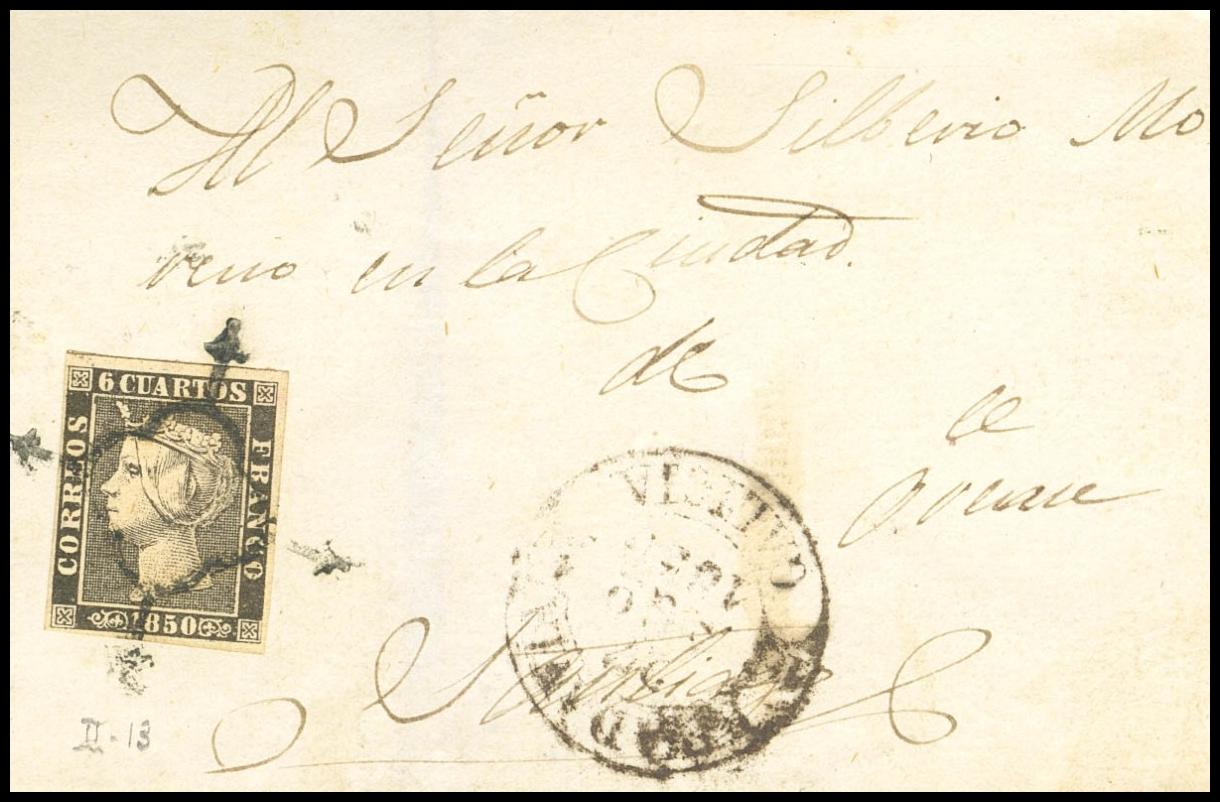 Al Señor Silberio Mo
reno en la Ciudad.
de
Santiago
6 CUARTOS
CORREOS
FRANCO
1850
II-13